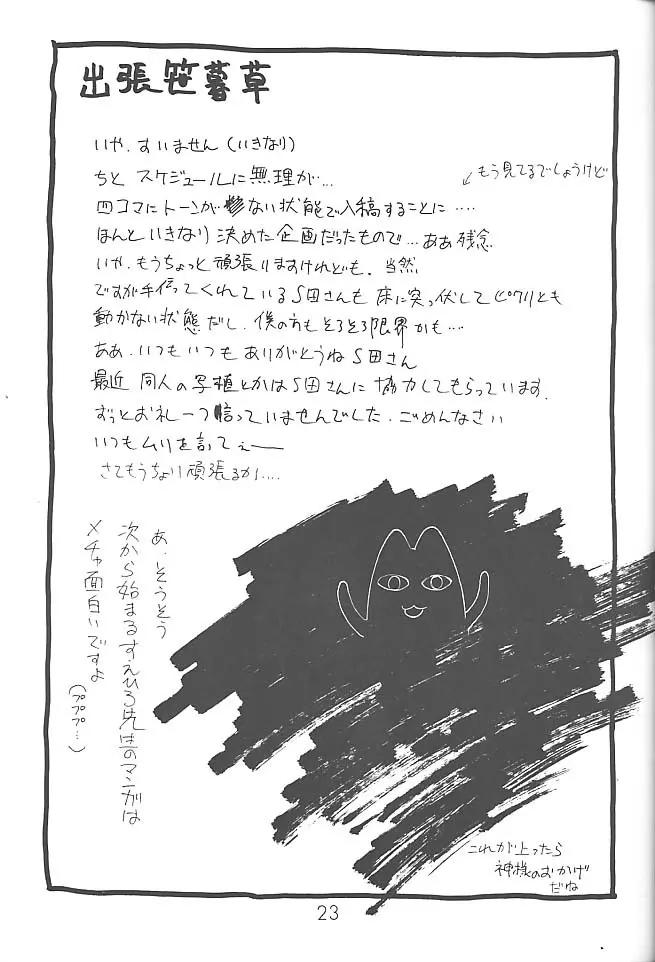 出張笹暮草
いや、すいません(いきなり)
ちと スケジュールに無理が…
↙もう見てるでしょうけど
四コマにトーンがない状態で入稿することに…
ほんといきなり決めた企画だったもので…ああ残念
いや、もうちょっと頑張りますけれども、当然
ですが手伝ってくれているS田さんも床に突っ伏してピクリとも
動かない状態だし、僕の方もそろそろ限界かも…
ああ、いつもいつもありがとうねS田さん
最近同人の写植とかはS田さんに協力してもらっています。
ずっとお礼一つ言っていませんでした、ごめんなさい
いつもムリを言ってぇー
さてもうちょい頑張るか…
あ、そうそう
次から始まるすえひろ先生のマンガは
メチャ面白いですよ
(ププププ…)
これが上ったら
神様のおかげ
だね
23